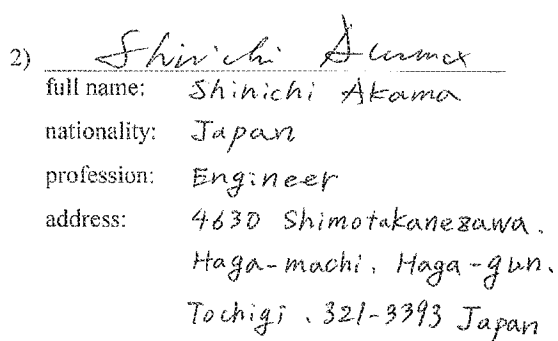 2) Shinichi Akama
full name: Shinichi Akama
nationality: Japan
profession: Engineer
address: 4630 Shimotakanezawa.
Haga-machi. Haga-gun.
Tochigi. 321-3393 Japan